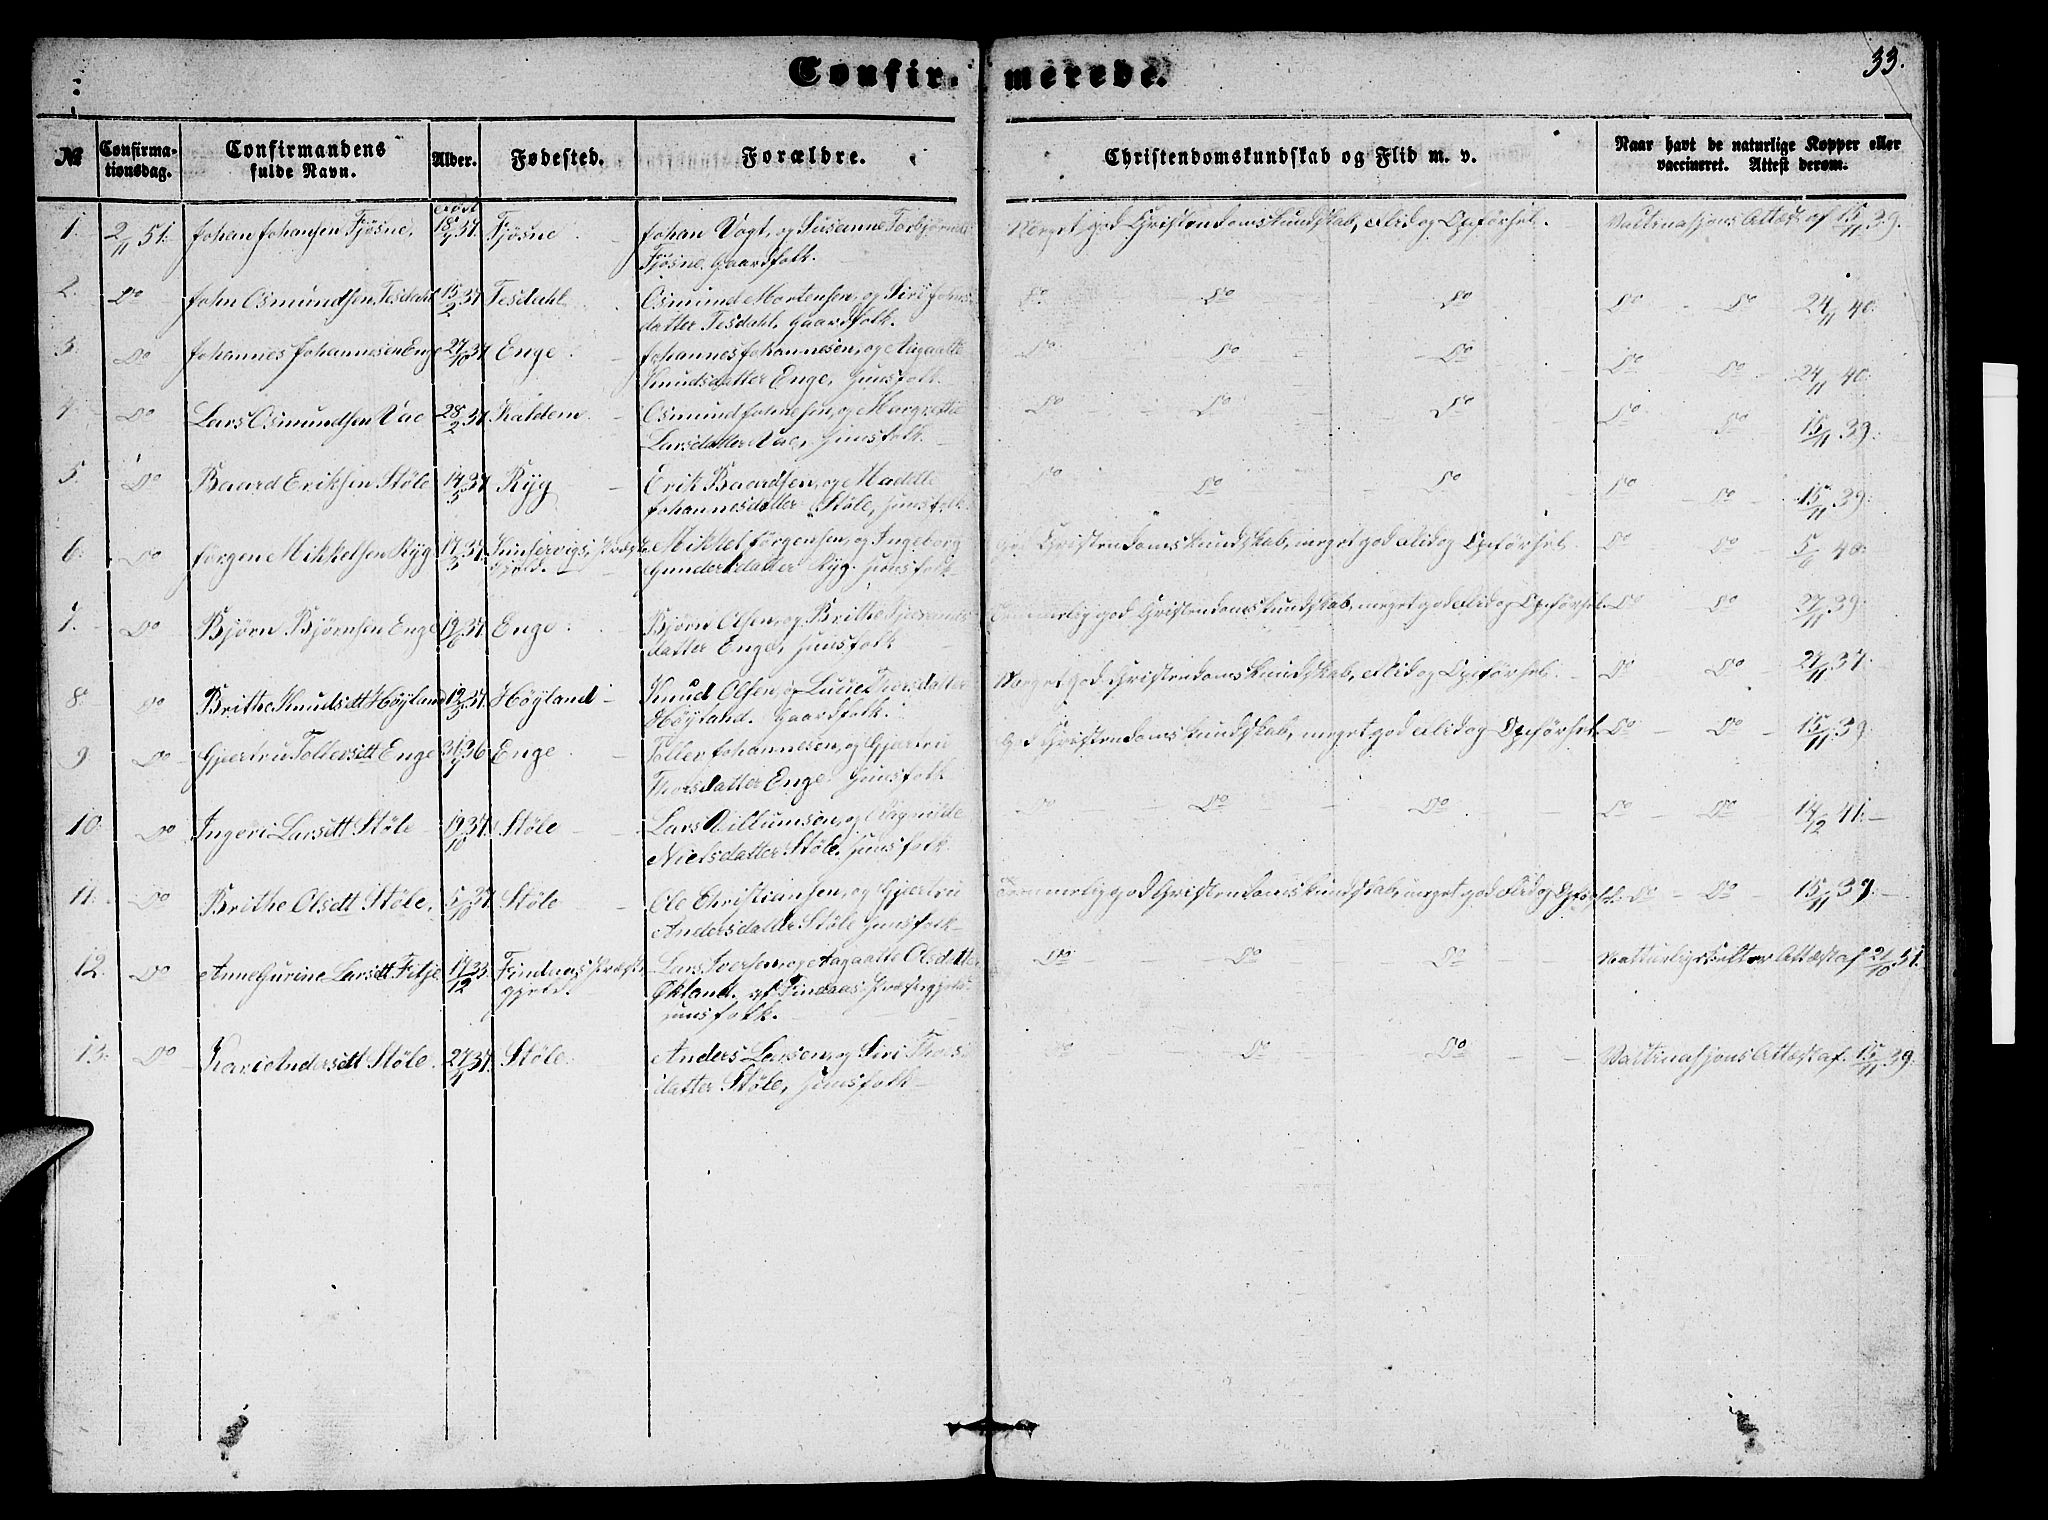 Confirmerede.
33.
№
Confirmationsdag.
Confirmandens fulde Navn.
Alder.
Fødested.
Forældre.
Christendomskundskab og Flid m. v.
Naar havt de naturlige Kopper eller vaccineret. Attest derom.
1. 2/11 51. Johan Johansen Fjøsne. Fjøsne Johan Vogt, og Susanne Torbjørns Meget god Christendomskundskab, Flid og Opførsel. Vaktinasjons Attest af 15/11 39.
Fjøsne, Gaardfolk.
2. Do John Osmundsen Tesdahl 15/2 37 Tesdahl Osmund Mortensen, og Siri Johns Do Do Do Do Do 24/11 40.
datter Tesdahl, Gaardfolk.
3. Do Johannes Johannesen Enge 27/10 37 Enge Johannes Johannesen, og Aagaatte Do Do Do Do Do 24/11 40.
Knudsdatter Enge, Huusfolk
4. Do Lars Osmundsen Vae 28/2 37 Kaldem Osmund Johnesen, og Margrethe Do Do Do Do Do 15/11 39.
Larsdatter Vae, Huusfolk
5. Do Baard Eriksen Støle 14/5 37 Ryg Erik Baardsen, og Madette Do Do Do Do Do 15/11 39.
Johannesdatter Støle, Huusfolk
6. Do Jørgen Mikkelsen Ryg 17/5 37 Kinservigs Præste Mikkel Jørgensen, og Ingeborg God Christendomskundskab, meget god Flid og Opførsel Do Do 5/6 40.
gjeld. Gundersdatter Ryg. Huusfolk
7. Do Bjørn Bjørnsen Enge 19/6 37. Enge Bjørn Olsen, og Brithe god Christendomskundskab, meget god Flid og Opførsel. Do Do 27/11 39.
datter Enge, Huusfolk
8. Do Brithe Knudsdt Høyland 12/5 37. Høyland Knud Olsen, og Lucie Thorsdatter Meget god Christendomskundskab, Flid og Opførsel. Do Do 27/11 37.
Høyland. Gaardfolk.
9 Do Gjertru Tollersdtt Enge Enge Toller Johannesen, og Gjertru God Christendomskundskab, meget god Flid og Opførsel. Do Do 15/11 39.
Thorsdatter Enge. Huusfolk
10. Do Ingeri Larsdtt Støle 19/10 37. Støle Lars Villumsen, og Ragnilde Do Do Do Do Do 14/12 41.
Nielsdatter Støle, Huusfolk
11. Do Brithe Olsdtt Støle. 5/10 37 Støle Ole Christiansen, og Gjertru Temmelig god Christendomskundskab, meget god Flid og Opførsel. Do Do 15/11 39.
Andersdatter Støle Huusfolk
12. Do Anne Gurine Larsdtt Fitje 17/12 35. Findaas Præste Lars Iversen, og Aagaatte Olsdatter Do Do Do Natturlig Attest af 21/10 51.
gjeld. Økland. af Findaas Præstegjeld.
Huusfolk.
13. Do Kari Andersdtt Støle 27/4 37. Støle. Anders Larsen, og Siri Thors Do Do Do Vaktinasjons Attest af 15/11 39.
datter Støle, Huusfolk